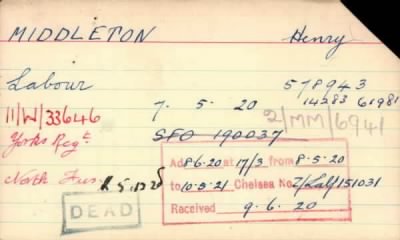 MIDDLETON Henry
Labour 578943
14283 61981
11/W/33646 7. 5. 20 2/MM/6941
Yorks Regt SFO 190037
North Fus.
Ad 8·6·20 at 17/3 from 8-5-20
to 10·5·21 Chelsea No. 7/Lab/151031
Received 9. 6. 20
DEAD